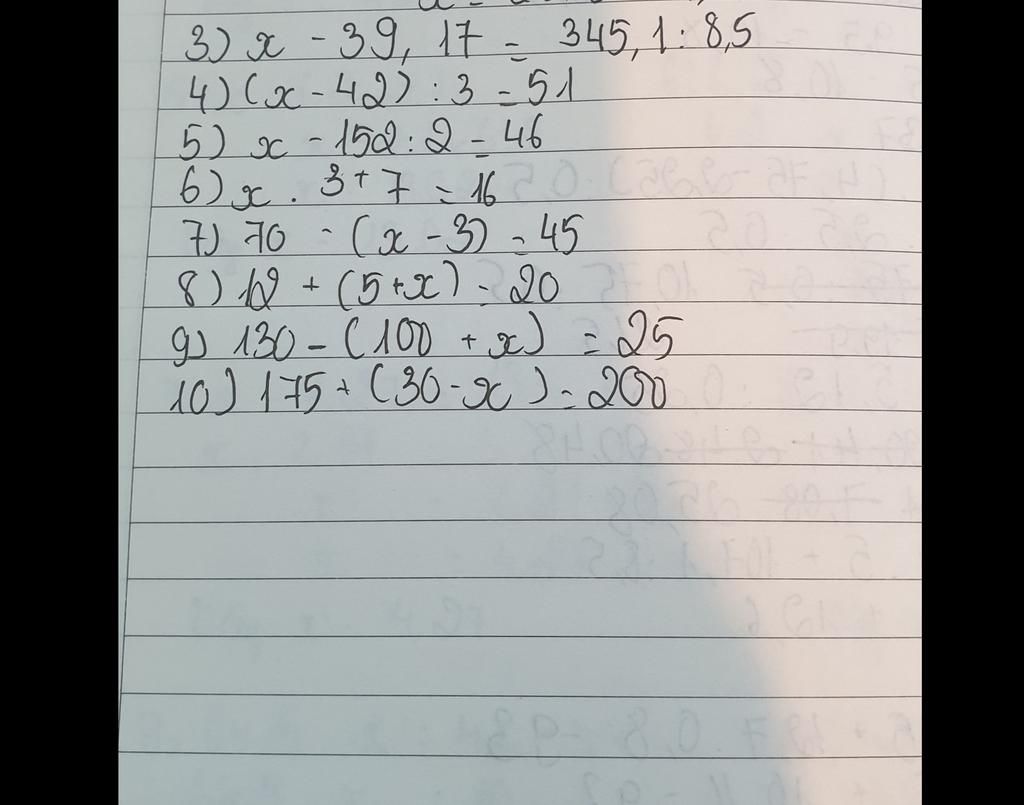 3) x - 39, 17 = 345, 1 : 8,5
4) (x - 42) : 3 = 51
5) x - 152 : 2 = 46
6) x . 3 + 7 = 16
7) 70 - (x - 3) = 45
8) 12 + (5 + x) = 20
9) 130 - (100 + x) = 25
10) 175 + (30 - x) = 200